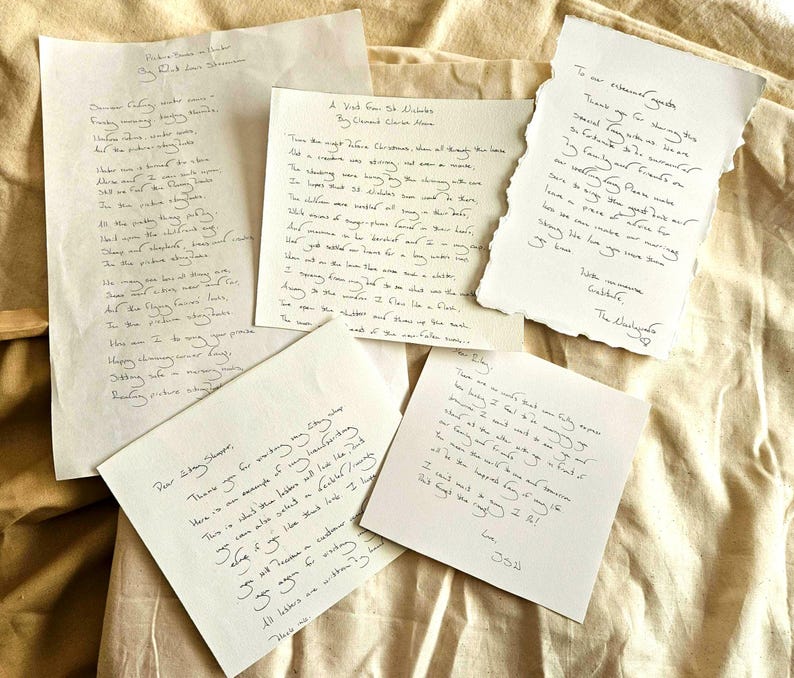 Picture-Books in Winter
By Robert Louis Stevenson
Summer fading, winter comes -
Frosty mornings, tingling thumbs,
Window robins, winter rooks,
And the picture story-books.
Water now is turned to stone
Nurse and I can walk upon;
Still we find the flowing brooks
In the picture story-books.
All the pretty things put by,
Wait upon the children's eye,
Sheep and shepherds, trees and crooks,
In the picture story-books.
We may see how all things are,
Seas and cities, near and far,
And the flying fairies looks,
In the picture story-books.
How am I to sing your praise
Happy chimney-corner days,
Sitting safe in nursery nooks,
Reading picture story-books
A Visit From St. Nicholas
By Clement Clarke Moore
'Twas the night before Christmas, when all through the house
Not a creature was stirring, not even a mouse.
The stockings were hung by the chimney with care
In hopes that St. Nicholas soon would be there.
The children were nestled all snug in their beds,
While visions of sugar-plums danced in their heads,
And mamma in her kerchief and I in my cap,
Had just settled our brains for a long winter's nap.
When out on the lawn there arose such a clatter,
I sprang from my bed to see what was the matter
Away to the window I flew like a flash,
Tore open the shutters and threw up the sash.
The moon breast of the new-fallen snow...
To our esteemed guests,
Thank you for sharing this
special day with us. We are
so fortunate to be surrounded
by family and friends on
our wedding day. Please make
sure to sign the guest book and
leave a piece of advice for
how we can make our marriage
strong. We love you more than
you know.
With immense
Gratitude,
The
Dear Etsy Shopper,
Thank you for visiting my Etsy shop.
Here is an example of my handwriting.
This is what the letters will look like, but
you can also select a deckled/
edge if you like that look. I hope
you will become a customer
you again for visiting my
All letters are written by hand
black ink.
Dear Riley,
There are no words that can fully express
how lucky I feel to be marrying you
tomorrow. I can't wait to meet you and
stand at the alter with you in front of
our family and friends.
You mean the world to me and tomorrow
will be the happiest day of my life.
I can't wait to say I Do!
Don't forget the rings!
Love,
JSW